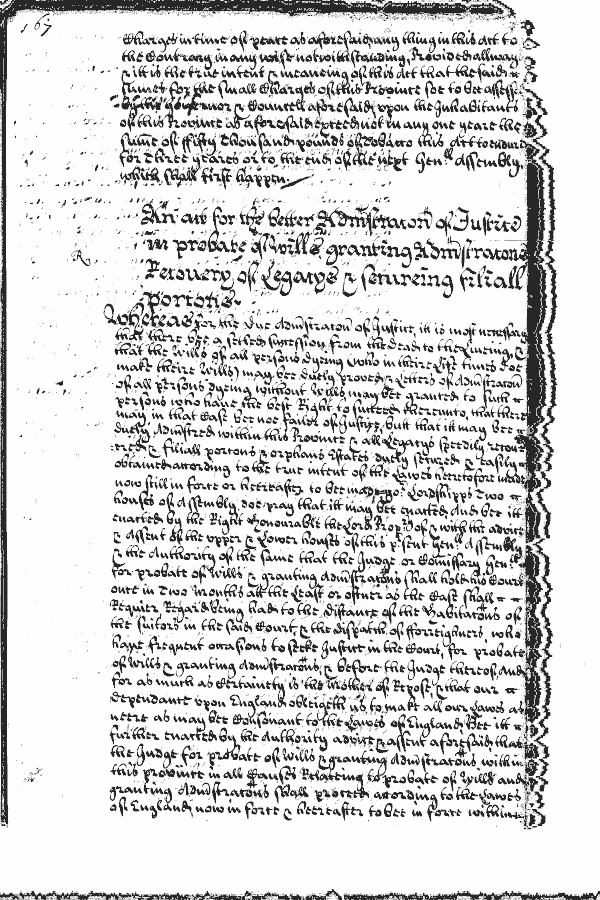 167
Charges in time of peace as aforesaid any thing in this Act to
the Contrary in any wise notwithstanding, Provided allways
& itt is the true intent & meaneing of this Act that the said
summes for the small Charges of this Province soe to be assess
by the Governor & Councell aforesaid upon the Inhabitants
of this Province as aforesaid exceed not in any one yeare the
sume of ffifty Thousand pounds of Tobacco this Act to endure
for Three yeares or to the end of the next Genll Assembly,
which shall first happen.
An act for the better Admistracon of Justice
in probate of Wills granting Admistracons
R
Recovery of Legacys & secureing filiall
portons.
Whereas for the Due Admistracon of Justice, itt is most necessary
that there bee a setled succession from the Dead to the Liveing, &
that the Wills of all persons dyeing (who in theire Life times doe
make theire Wills) may bee duely proved & Letters of Admistracon
of all persons dyeing without Wills may bee granted to such
persons who have the best Right to succeed thereunto, that there
may in that Case bee noe failer of Justice, but that itt may bee
duely Admistred within this Province & all Legacys speedily recov
ered & filiall portons & orphans Estates duely secured & easily
obtained according to the true intent of the Lawes heretofore made
now still in force or hereafter to bee made yor Lordshipps Two
houses of Assembly doe pray that itt may bee enacted And bee itt
enacted by the Right Honourable the Lord Propr of & with the advice
& assent of the upper & Lower houses of this p'sent Genll Assembly
& the Authority of the same that the Judge or Comissary Genll
for probate of Wills & granting admistracons shall hold his Court
once in Two months att the Least or oftner as the Case shall
Require Regard being had to the distance of the Habitacons of
the suitors in the said Court, & the dispatch of fforreigners, who
have frequent occasions to seeke Justice in the Court for probate
of Wills & granting Admistracons, & before the Judge thereof, And
for as much as Certainety is the mother of Repose, & that our
dependance upon England obleigeth us to make all our Lawes as
neere as may bee Consonant to the Lawes of England, Bee itt
further enacted by the Authority advice & assent aforesaid that
the Judge for probate of Wills & granting admistracons within
this province in all Causes Relateing to probate of Wills and
granting Admistracons shall proceed according to the Lawes
of England now in force & hereafter to bee in force within